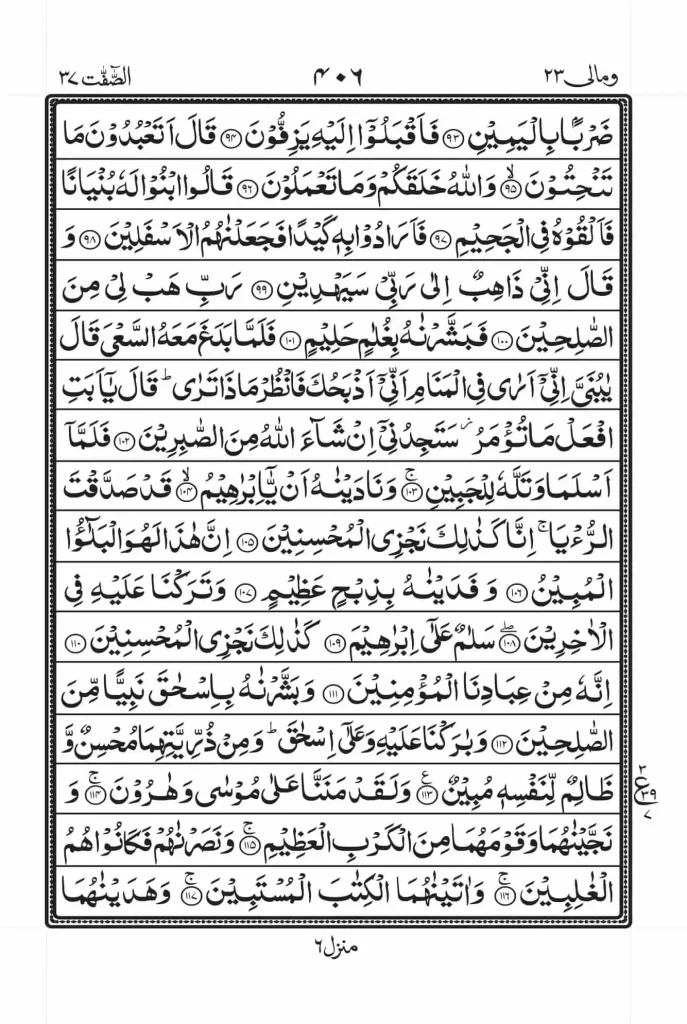 الصّٰٓفّٰت ۳۷ ۴۰۶ ومالى ۲۳
ضَرْبًۢا بِالْيَمِيْنِ ۹۳ فَاَقْبَلُوْۤا اِلَيْهِ يَزِفُّوْنَ ۹۴ قَالَ اَتَعْبُدُوْنَ مَا
تَنْحِتُوْنَ ۙ ۹۵ وَاللّٰهُ خَلَقَكُمْ وَمَا تَعْمَلُوْنَ ۹۶ قَالُوا ابْنُوْا لَهٗ بُنْيَانًا
فَاَلْقُوْهُ فِى الْجَحِيْمِ ۹۷ فَاَرَادُوْا بِهٖ كَيْدًا فَجَعَلْنٰهُمُ الْاَسْفَلِيْنَ ۹۸ وَ
قَالَ اِنِّىْ ذَاهِبٌ اِلٰى رَبِّىْ سَيَهْدِيْنِ ۹۹ رَبِّ هَبْ لِىْ مِنَ
الصّٰلِحِيْنَ ۱۰۰ فَبَشَّرْنٰهُ بِغُلٰمٍ حَلِيْمٍ ۱۰۱ فَلَمَّا بَلَغَ مَعَهُ السَّعْىَ قَالَ
يٰبُنَىَّ اِنِّىْۤ اَرٰى فِى الْمَنَامِ اَنِّىْۤ اَذْبَحُكَ فَانْظُرْ مَاذَا تَرٰى ؕ قَالَ يٰۤاَبَتِ
افْعَلْ مَا تُؤْمَرُ ؗ سَتَجِدُنِىْۤ اِنْ شَآءَ اللّٰهُ مِنَ الصّٰبِرِيْنَ ۱۰۲ فَلَمَّاۤ
اَسْلَمَا وَتَلَّهٗ لِلْجَبِيْنِ ۚ ۱۰۳ وَنَادَيْنٰهُ اَنْ يّٰۤاِبْرٰهِيْمُ ۙ ۱۰۴ قَدْ صَدَّقْتَ
الرُّءْيَا ۚ اِنَّا كَذٰلِكَ نَجْزِى الْمُحْسِنِيْنَ ۱۰۵ اِنَّ هٰذَا لَهُوَ الْبَلٰٓؤُا
الْمُبِيْنُ ۱۰۶ وَفَدَيْنٰهُ بِذِبْحٍ عَظِيْمٍ ۱۰۷ وَتَرَكْنَا عَلَيْهِ فِى
الْاٰخِرِيْنَ ۖ ۱۰۸ سَلٰمٌ عَلٰٓى اِبْرٰهِيْمَ ۱۰۹ كَذٰلِكَ نَجْزِى الْمُحْسِنِيْنَ ۱۱۰
اِنَّهٗ مِنْ عِبَادِنَا الْمُؤْمِنِيْنَ ۱۱۱ وَبَشَّرْنٰهُ بِاِسْحٰقَ نَبِيًّا مِّنَ
الصّٰلِحِيْنَ ۱۱۲ وَبٰرَكْنَا عَلَيْهِ وَعَلٰٓى اِسْحٰقَ ؕ وَمِنْ ذُرِّيَّتِهِمَا مُحْسِنٌ وَّ
ظَالِمٌ لِّنَفْسِهٖ مُبِيْنٌ ع ۱۱۳ وَلَقَدْ مَنَنَّا عَلٰى مُوْسٰى وَهٰرُوْنَ ۚ ۱۱۴ وَ
۳ ع ۳۹ ۷
نَجَّيْنٰهُمَا وَقَوْمَهُمَا مِنَ الْكَرْبِ الْعَظِيْمِ ۚ ۱۱۵ وَنَصَرْنٰهُمْ فَكَانُوْا هُمُ
الْغٰلِبِيْنَ ۚ ۱۱۶ وَاٰتَيْنٰهُمَا الْكِتٰبَ الْمُسْتَبِيْنَ ۚ ۱۱۷ وَهَدَيْنٰهُمَا
منزل ۶